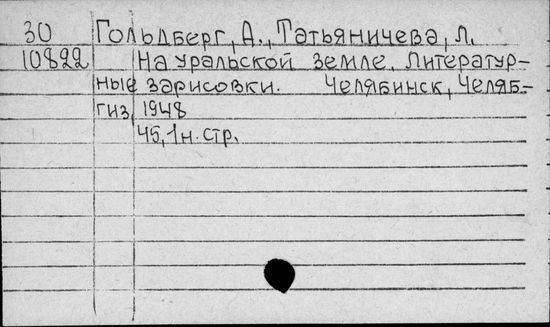 30 Гольдберг, А., Татьяничева, Л.
10822 На уральской земле. Литератур-
ные зарисовки. Челябинск, Челяб-
гиз, 1948
45, 1 н. стр.